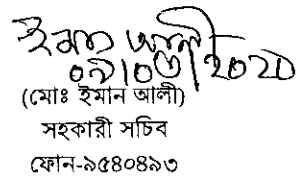 ইমান আলী
০৯/০৩/২০২০
(মোঃ ইমান আলী)
সহকারী সচিব
ফোন-৯৫৪০৪৯৩